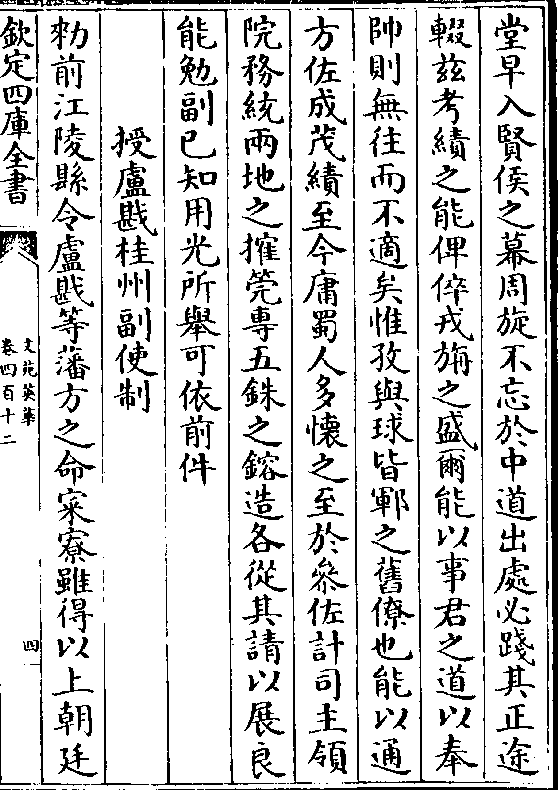 堂早入賢侯之幕周旋不忘於中道出處必踐其正途
輟兹考績之能俾倅戎旃之盛爾能以事君之道以奉
帥則無往而不適矣惟孜與球皆鄆之舊僚也能以通
方佐成茂績至今庸蜀人多懷之至於叅佐計司主領
院務統兩地之搉筦專五銖之鎔造各從其請以展良
能勉副已知用光所舉可依前件
授盧戡桂州副使制
勑前江陵縣令盧戡等藩方之命寀寮雖得以上朝廷
欽定四庫全書
文苑英華
卷四百十二
四